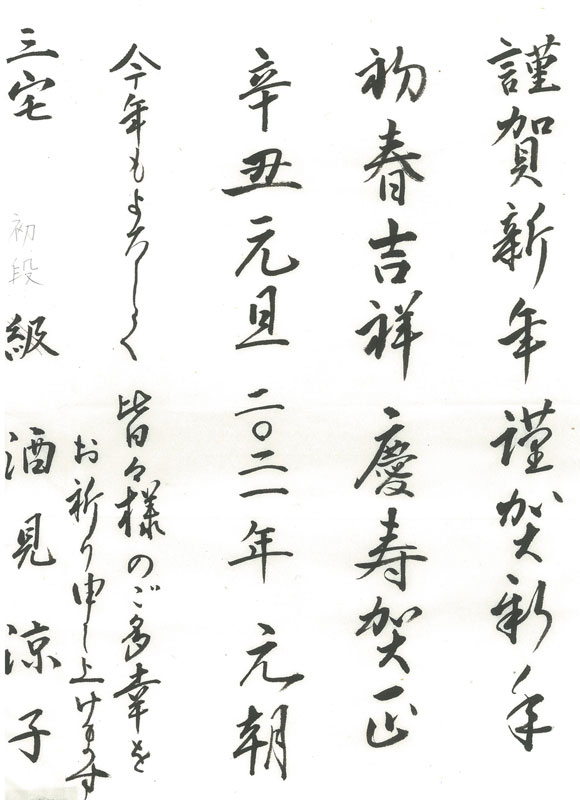 謹賀新年 謹賀新年
初春吉祥 慶寿賀正
辛丑元旦 二〇二一年 元朝
今年もよろしく 皆々様のご多幸を
お祈り申し上げます
三宅 初段 級 酒見涼子